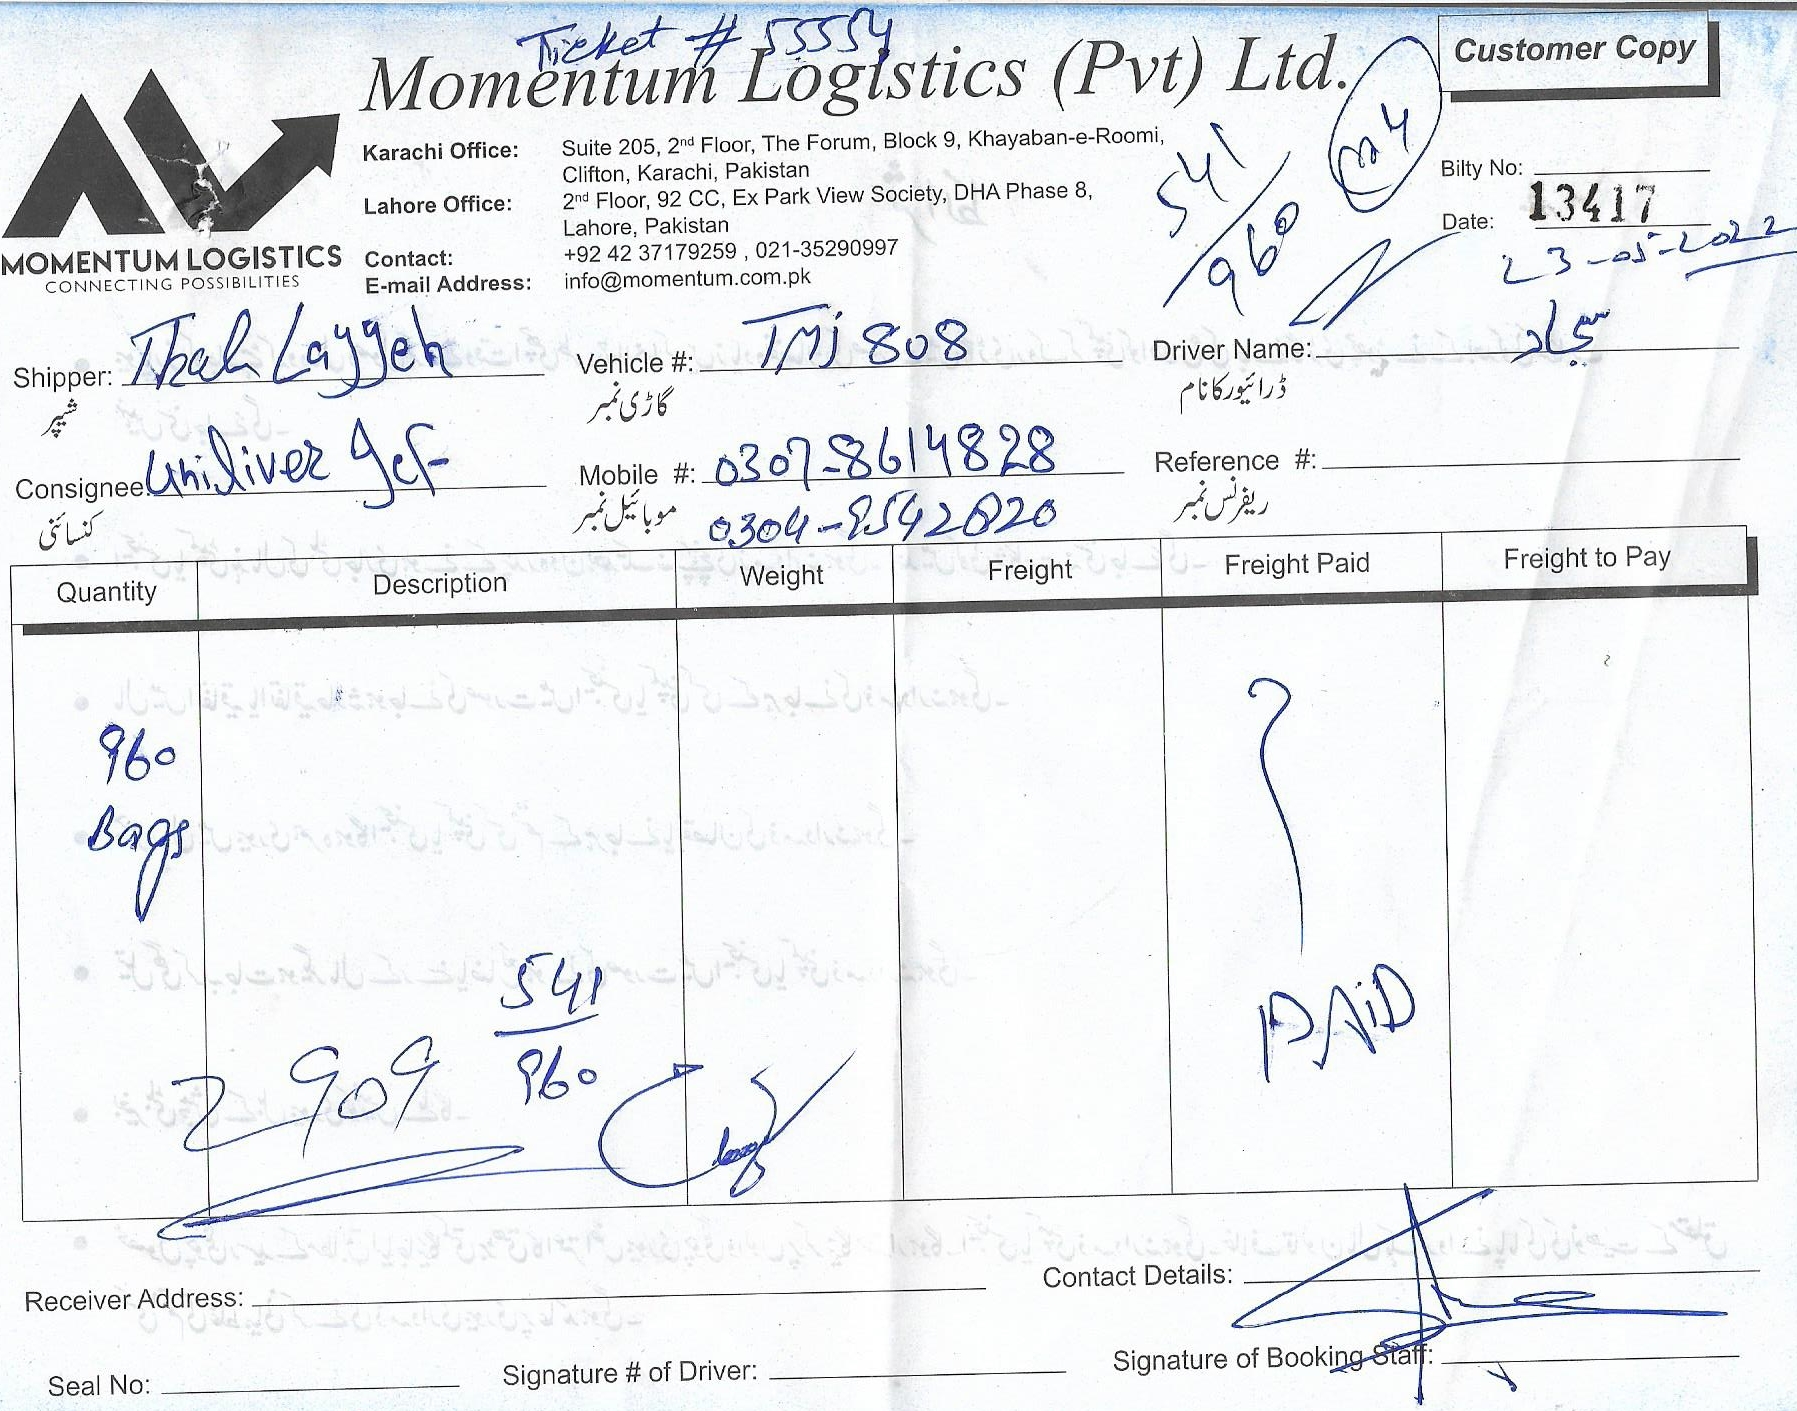 Ticket # 55554
Momentum Logistics (Pvt) Ltd.
Customer Copy
Karachi Office: Suite 205, 2nd Floor, The Forum, Block 9, Khayaban-e-Roomi,
Clifton, Karachi, Pakistan
Lahore Office: 2nd Floor, 92 CC, Ex Park View Society, DHA Phase 8,
Lahore, Pakistan
Contact: +92 42 37179259 , 021-35290997
E-mail Address: info@momentum.com.pk
MOMENTUM LOGISTICS
CONNECTING POSSIBILITIES
541
960
Bilty No:
13417
Date: 23-05-2022
Shipper: Thal Layyeh
شپر
Vehicle #: TMJ 808
گاڑی نمبر
Driver Name: سجاد
ڈرائیور کا نام
Consignee: Uniliver
کنسائنی
Mobile #: 0307-8614828
موبائیل نمبر 0304-9542020
Reference #:
ریفرنس نمبر
Quantity Description Weight Freight Freight Paid Freight to Pay
960
Bags
541
960
2909
PAiD
Receiver Address:
Contact Details:
Seal No:
Signature # of Driver:
Signature of Booking Staff: